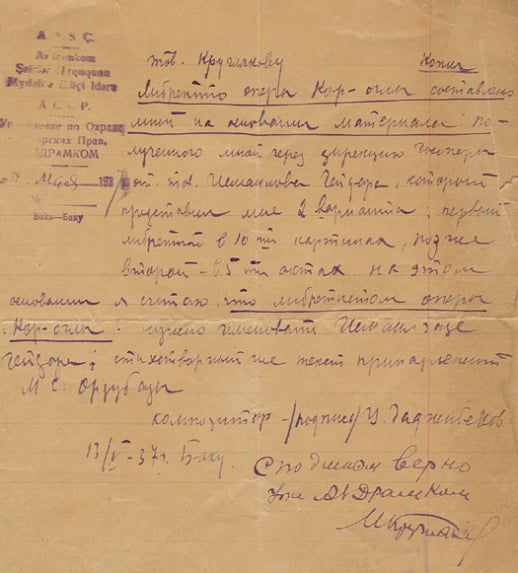 A S S C
Şəxsər Hyquqların
Mydafiə Ediçi Idarə
А С С Р.
Управление по Охране
Авторских Прав,
АЗДРАМКОМ
14 мая 1937
№
Вакь—Баку
тов. Кругликову Копия
Либретто оперы Кор-оглы составлено
мной на основании материала по-
лученного мной через дирекцию Госоперы
от тов. Исмаилова Гейдара, который
представил мне 2 варианта: первый
либреттой в 10 ти картинах, позже
второй – в 5 ти актах. На этом
основании я считаю, что либреттистом оперы
"Кор-оглы" нужно именовать Исмаилзаде
Гейдара; стихотворный же текст принадлежит
М. С. Ордубады
композитор – /подпись/ У. Гаджибеков
13/V – 37 г. Баку.
С подлинным верно
Упол АзДрамком